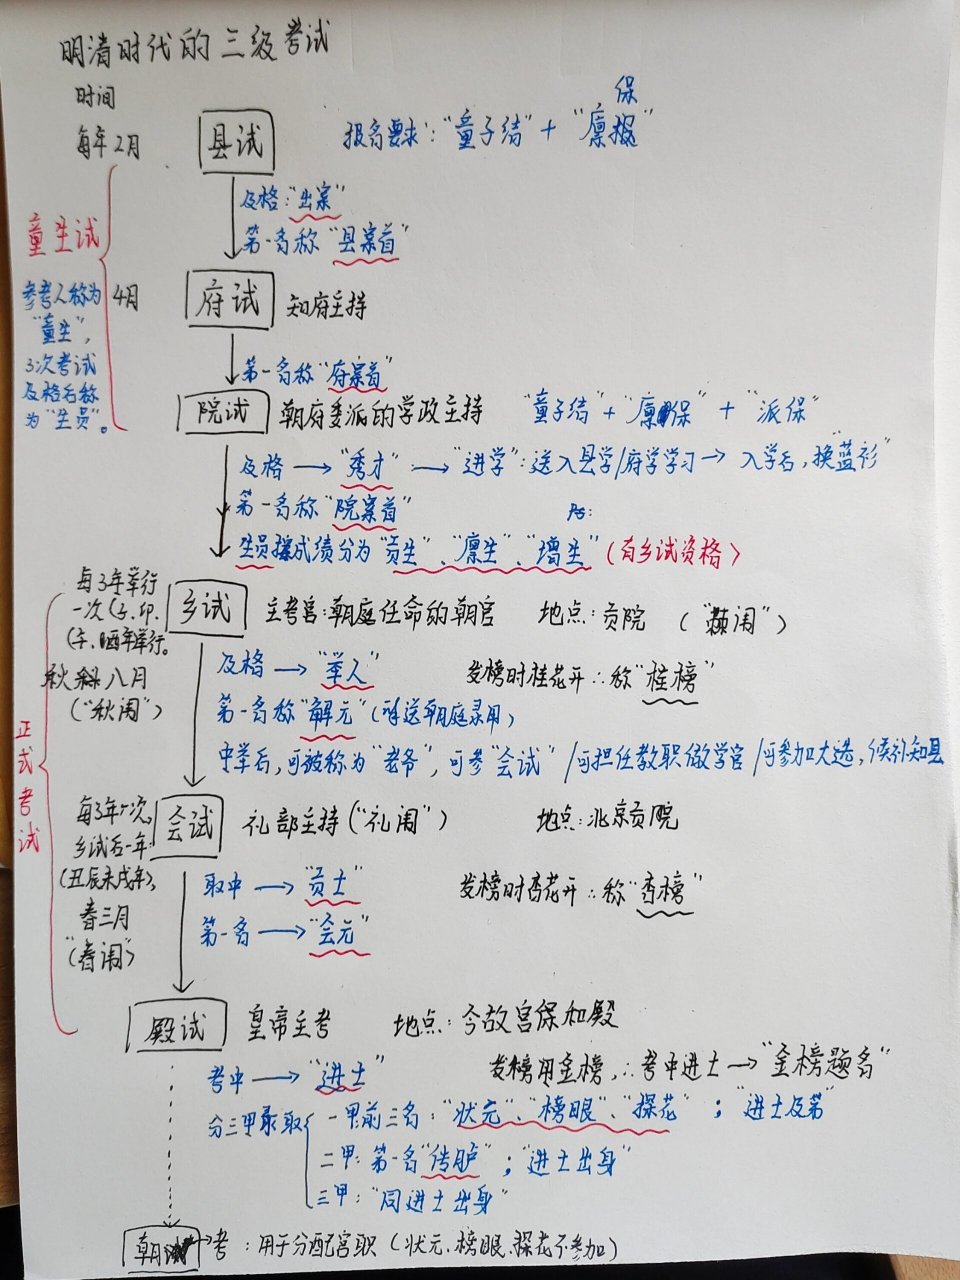 明清时代的三级考试
时间
每年2月
县试
报名要求：“童子结”+“廪保”
及格：“出案”
第一名称“县案首”
童生试
参考人称为
“童生”，
3次考试
及格后称
为“生员”。
4月
府试
知府主持
第一名称“府案首”
院试
朝府委派的学政主持
“童子结”+“廪保”+“派保”
及格→“秀才”→“进学”：送入县学/府学学习→入学后，换“蓝衫”
第一名称“院案首”
生员按成绩分为“贡生”、“廪生”、“增生”（有乡试资格）
正式考试
每3年举行
一次（子、卯、
午、酉年举行。
秋 八月
（“秋闱”）
乡试
主考官：朝庭任命的朝官 地点：贡院 （“棘闱”）
及格→“举人”
发榜时桂花开∴称“桂榜”
第一名称“解元”（送朝庭录用）
中举后，可被称为“老爷”，可参“会试”/可担任教职做学官/可参加大选，候补知县
每3年一次，
乡试后一年
（丑辰未戌年），
春三月
“（春闱”）
会试
礼部主持（“礼闱”） 地点：北京贡院
取中→“贡士”
发榜时杏花开∴称“杏榜”
第一名→“会元”
殿试
皇帝主考 地点：今故宫保和殿
考中→“进士”
发榜用金榜，∴考中进士→“金榜题名”
分三甲录取
一甲前三名：“状元”、“榜眼”、“探花”；“进士及第”
二甲：第一名“传胪”；“进士出身”
三甲：“同进士出身”
朝 考：用于分配官职（状元、榜眼、探花不参加）